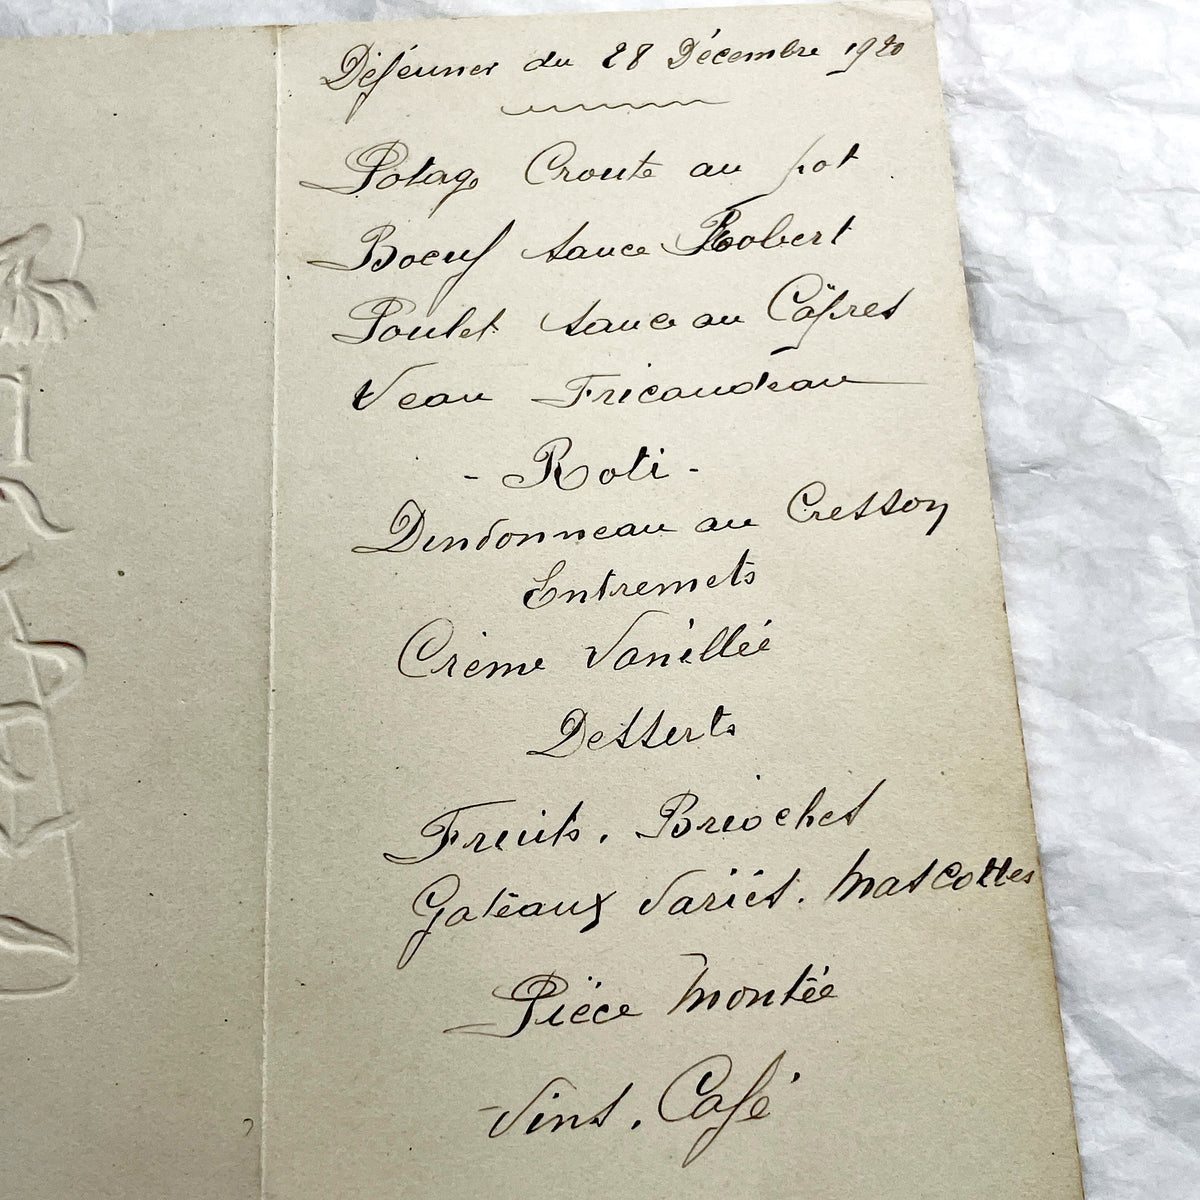 Déjeuner du 28 Décembre 1920
Potage Croute au pot
Boeuf sauce Robert
Poulet sauce au Câpres
Veau Fricandeau
- Roti -
Dindonneau au Cresson
Entremets
Crème Vanillée
Desserts
Fruits. Brioches
Gateaux Variés. Mascottes
Pièce Montée
Vins. Café